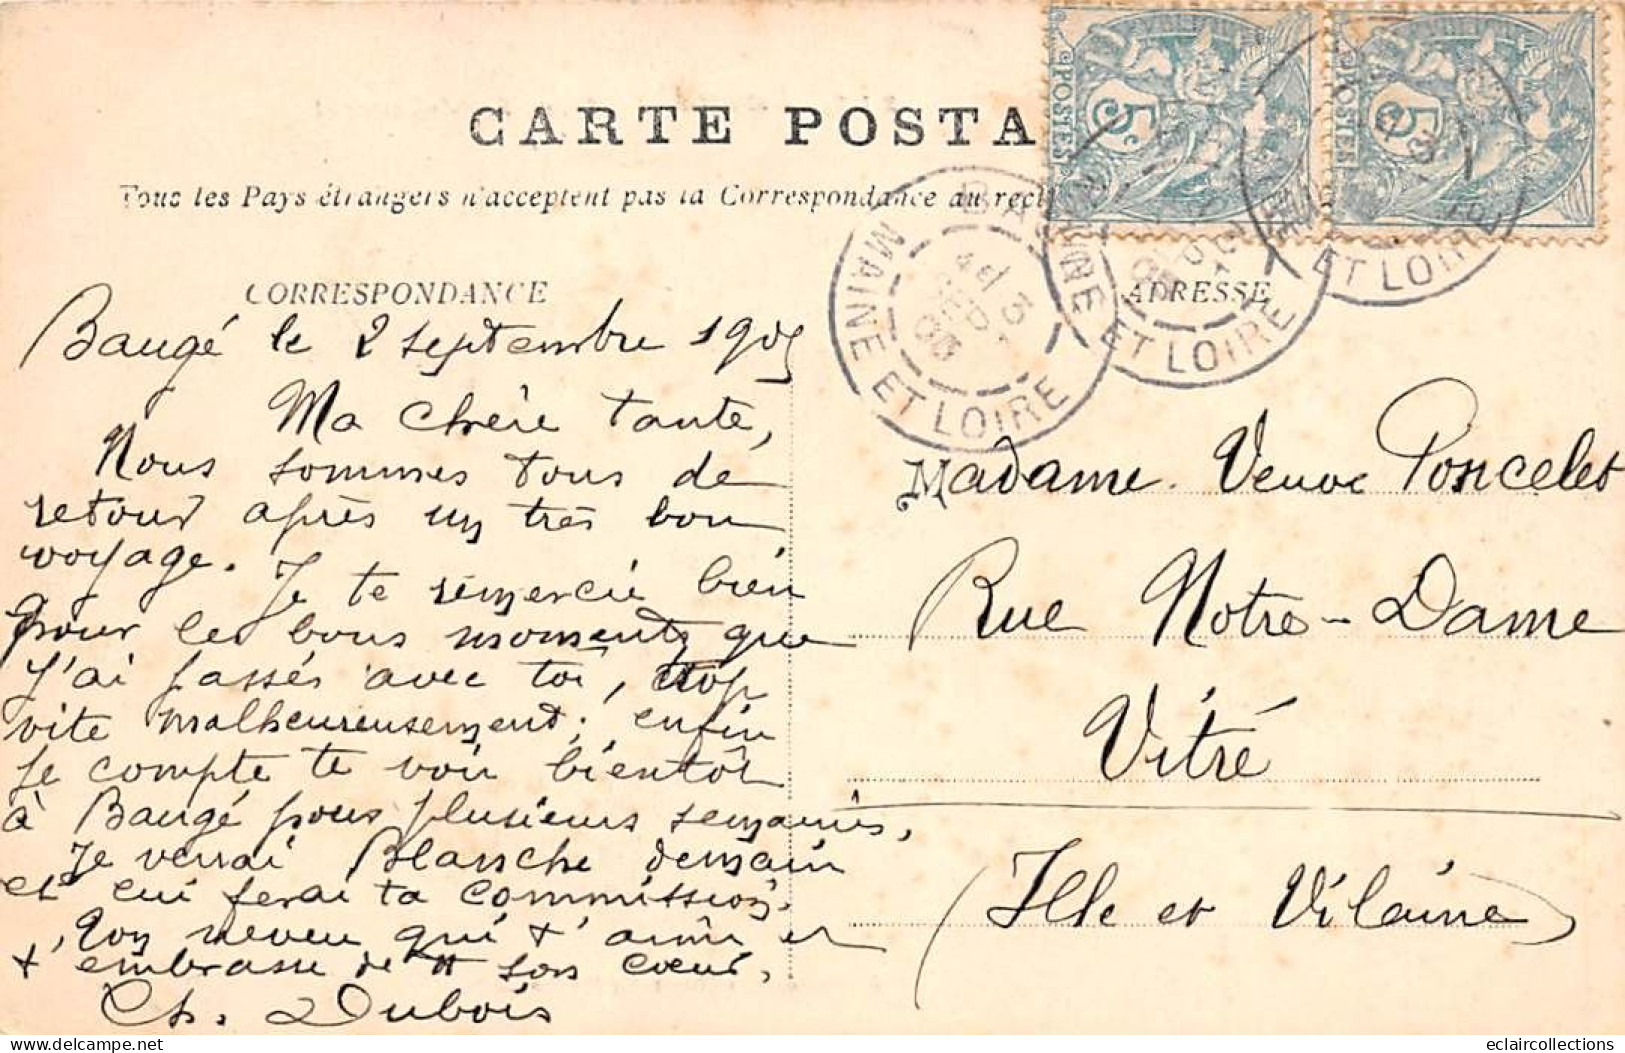 CARTE POSTA
Tous les Pays étrangers n'acceptent pas la Correspondance au rect
CORRESPONDANCE
ADRESSE
POSTES
5c
POSTES
5c
MAINE ET LOIRE
MAINE ET LOIRE
ET LOIRE
Baugé le 2 septembre 1905
Ma chère tante,
Nous sommes tous de
retour après un très bon
voyage. Je te remercie bien
pour les bons moments que
j'ai passés avec toi, trop
vite malheureusement; enfin
je compte te voir bientôt
à Baugé pour plusieurs semaines,
Je verrai Blanche demain
et lui ferai ta commission.
Ton neveu qui t'aime et
t'embrasse de tt son cœur,
Ch. Dubois
Madame Veuve Poncelet
Rue Notre-Dame
Vitré
(Ille et Vilaine)
eclaircollections
delcampe.net